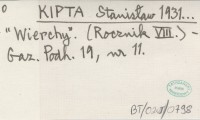 0
KIPTA Stanisław 1931...
"Wierchy". (Rocznik VIII.) -
Gaz. Podh. 19, nr 11.